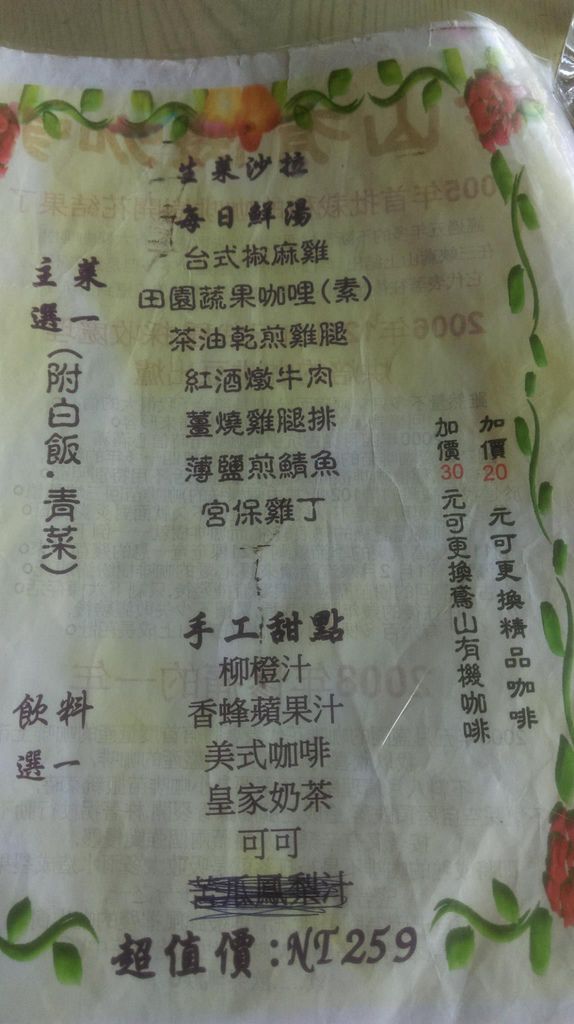 生菜沙拉
每日鮮湯
主菜
選一
(附白飯·青菜)
台式椒麻雞
田園蔬果咖哩(素)
茶油乾煎雞腿
紅酒燉牛肉
薑燒雞腿排
薄鹽煎鯖魚
宮保雞丁
手工甜點
飲料
選一
柳橙汁
香蜂蘋果汁
美式咖啡
皇家奶茶
可可
苦瓜鳳梨汁
加價20元可更換精品咖啡
加價30元可更換鳶山有機咖啡
超值價:NT259